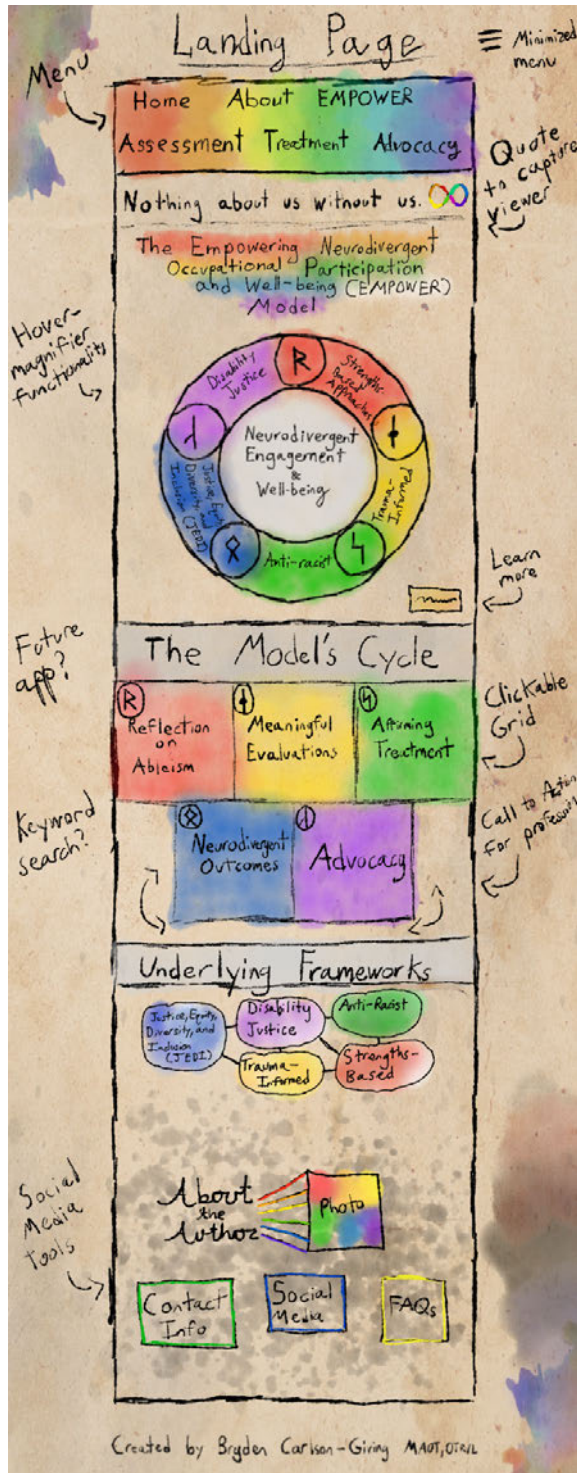 Landing Page
Minimized
menu
Menu
Home About EMPOWER
Assessment Treatment Advocacy
Quote
to capture
viewer
Nothing about us without us.
The Empowering Neurodivergent
Occupational Participation
and Well-being (EMPOWER)
Model
Hover-
magnifier
functionality
Disability
Justice
R
Strengths-
Based
Approaches
Neurodivergent
Engagement
&
Well-being
Justice, Equity,
Diversity, and
Inclusion (JEDI)
Trauma-
Informed
Anti-racist
Learn
more
Future
app?
The Model's Cycle
Clickable
Grid
R
Reflection
on
Ableism
Meaningful
Evaluations
Affirming
Treatment
Keyword
search?
Call to Action
for
Neurodivergent
Outcomes
Advocacy
Underlying Frameworks
Justice, Equity,
Diversity, and
Inclusion
(JEDI)
Disability
Justice
Anti-Racist
Trauma-
Informed
Strengths-
Based
Social
Media
Tools
About
the
Author
Photo
Contact
Info
Social
Media
FAQs
Created by Bryden Carlson-Giring MAOT, OTR/L